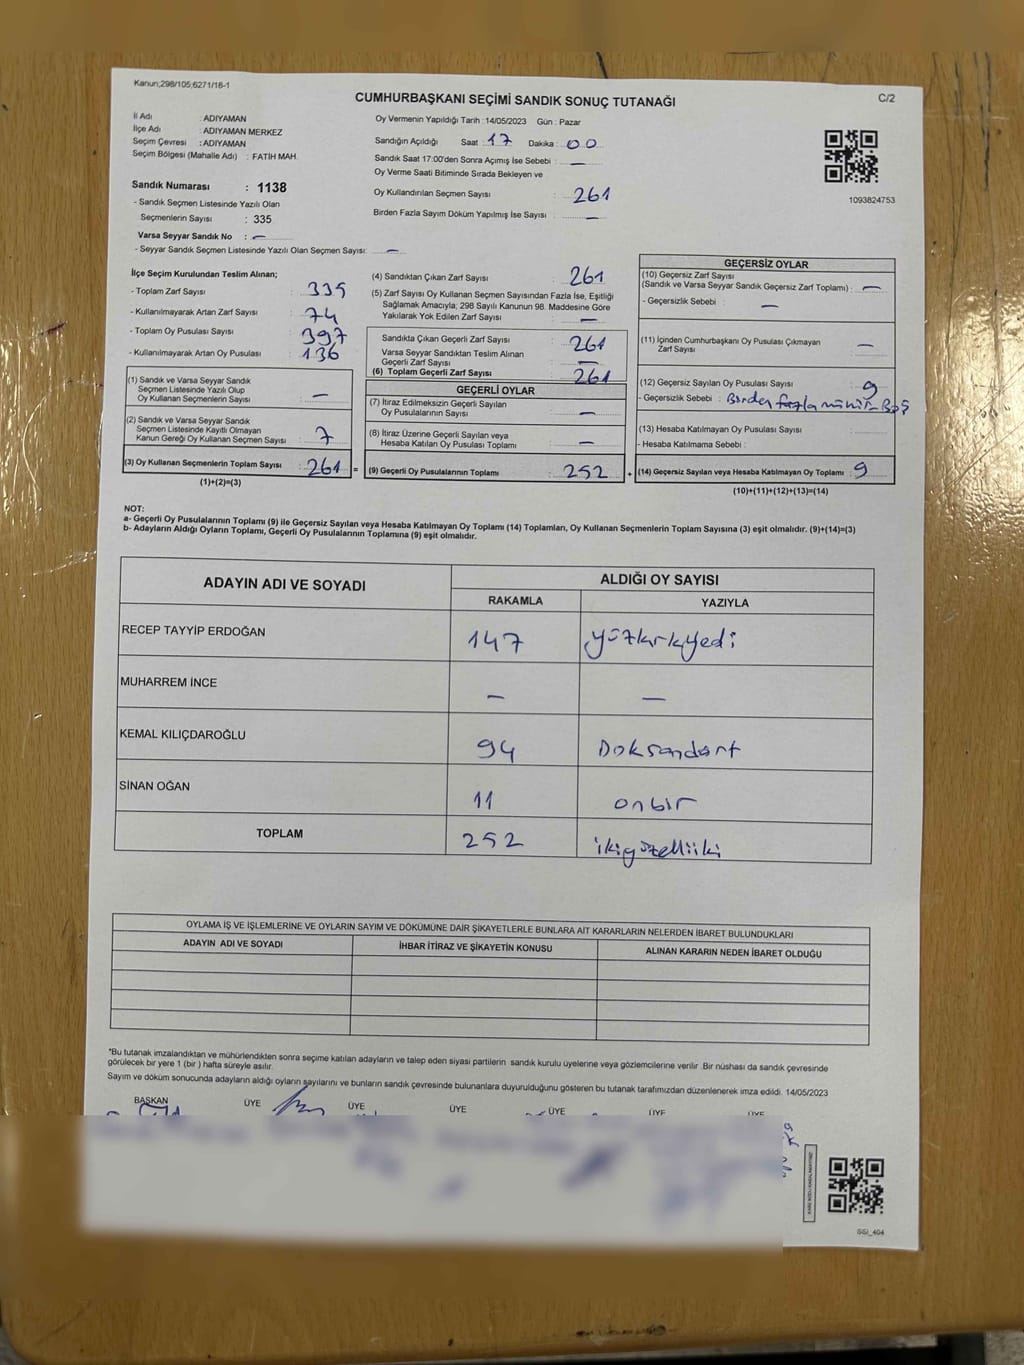 Kanun;298/105;6271/18-1
C/2
CUMHURBAŞKANI SEÇİMİ SANDIK SONUÇ TUTANAĞI
İl Adı : ADIYAMAN
İlçe Adı : ADIYAMAN MERKEZ
Seçim Çevresi : ADIYAMAN
Seçim Bölgesi (Mahalle Adı) : FATİH MAH.
Sandık Numarası : 1138
- Sandık Seçmen Listesinde Yazılı Olan
Seçmenlerin Sayısı : 335
Varsa Seyyar Sandık No : –
- Seyyar Sandık Seçmen Listesinde Yazılı Olan Seçmen Sayısı: –
Oy Vermenin Yapıldığı Tarih : 14/05/2023 Gün : Pazar
Sandığın Açıldığı Saat : 17 Dakika : 00
Sandık Saat 17:00'den Sonra Açımış İse Sebebi : –
Oy Verme Saati Bitiminde Sırada Bekleyen ve
Oy Kullandırılan Seçmen Sayısı : 261
Birden Fazla Sayım Döküm Yapılmış İse Sayısı : –
1093824753
İlçe Seçim Kurulundan Teslim Alınan;
- Toplam Zarf Sayısı : 335
- Kullanılmayarak Artan Zarf Sayısı : 74
- Toplam Oy Pusulası Sayısı : 397
- Kullanılmayarak Artan Oy Pusulası : 136
(1) Sandık ve Varsa Seyyar Sandık
Seçmen Listesinde Yazılı Olup
Oy Kullanan Seçmenlerin Sayısı : –
(2) Sandık ve Varsa Seyyar Sandık
Seçmen Listesinde Kayıtlı Olmayan
Kanun Gereği Oy Kullanan Seçmen Sayısı : 7
(3) Oy Kullanan Seçmenlerin Toplam Sayısı : 261 =
(1)+(2)=(3)
(4) Sandıktan Çıkan Zarf Sayısı : 261
(5) Zarf Sayısı Oy Kullanan Seçmen Sayısından Fazla İse, Eşitliği
Sağlamak Amacıyla; 298 Sayılı Kanunun 98. Maddesine Göre
Yakılarak Yok Edilen Zarf Sayısı : –
Sandıkta Çıkan Geçerli Zarf Sayısı : 261
Varsa Seyyar Sandıktan Teslim Alınan
Geçerli Zarf Sayısı : –
(6) Toplam Geçerli Zarf Sayısı : 261
GEÇERLİ OYLAR
(7) İtiraz Edilmeksizin Geçerli Sayılan
Oy Pusulalarının Sayısı : –
(8) İtiraz Üzerine Geçerli Sayılan veya
Hesaba Katılan Oy Pusulası Toplamı : –
(9) Geçerli Oy Pusulalarının Toplamı : 252 +
GEÇERSİZ OYLAR
(10) Geçersiz Zarf Sayısı
(Sandık ve Varsa Seyyar Sandık Geçersiz Zarf Toplamı) : –
- Geçersizlik Sebebi : –
(11) İçinden Cumhurbaşkanı Oy Pusulası Çıkmayan
Zarf Sayısı : –
(12) Geçersiz Sayılan Oy Pusulası Sayısı : 9
- Geçersizlik Sebebi : Birden fazla mühür-Boş
(13) Hesaba Katılmayan Oy Pusulası Sayısı :
- Hesaba Katılmama Sebebi :
(14) Geçersiz Sayılan veya Hesaba Katılmayan Oy Toplamı : 9
(10)+(11)+(12)+(13)=(14)
NOT:
a- Geçerli Oy Pusulalarının Toplamı (9) ile Geçersiz Sayılan veya Hesaba Katılmayan Oy Toplamı (14) Toplamları, Oy Kullanan Seçmenlerin Toplam Sayısına (3) eşit olmalıdır. (9)+(14)=(3)
b- Adayların Aldığı Oyların Toplamı, Geçerli Oy Pusulalarının Toplamına (9) eşit olmalıdır.
ADAYIN ADI VE SOYADI ALDIĞI OY SAYISI
RAKAMLA YAZIYLA
RECEP TAYYİP ERDOĞAN 147 yüzkırkyedi
MUHARREM İNCE – –
KEMAL KILIÇDAROĞLU 94 Doksandört
SİNAN OĞAN 11 onbir
TOPLAM 252 ikiyüzelliiki
OYLAMA İŞ VE İŞLEMLERİNE VE OYLARIN SAYIM VE DÖKÜMÜNE DAİR ŞİKAYETLERLE BUNLARA AİT KARARLARIN NELERDEN İBARET BULUNDUKLARI
ADAYIN ADI VE SOYADI İHBAR İTİRAZ VE ŞİKAYETİN KONUSU ALINAN KARARIN NEDEN İBARET OLDUĞU
"Bu tutanak imzalandıktan ve mühürlendikten sonra seçime katılan adayların ve talep eden siyasi partilerin sandık kurulu üyelerine veya gözlemcilerine verilir .Bir nüshası da sandık çevresinde
görülecek bir yere 1 (bir ) hafta süreyle asılır.
Sayım ve döküm sonucunda adayların aldığı oyların sayılarını ve bunların sandık çevresinde bulunanlara duyurulduğunu gösteren bu tutanak tarafımızdan düzenlenerek imza edildi. 14/05/2023
BAŞKAN ÜYE ÜYE ÜYE ÜYE ÜYE ÜYE
SSI_404